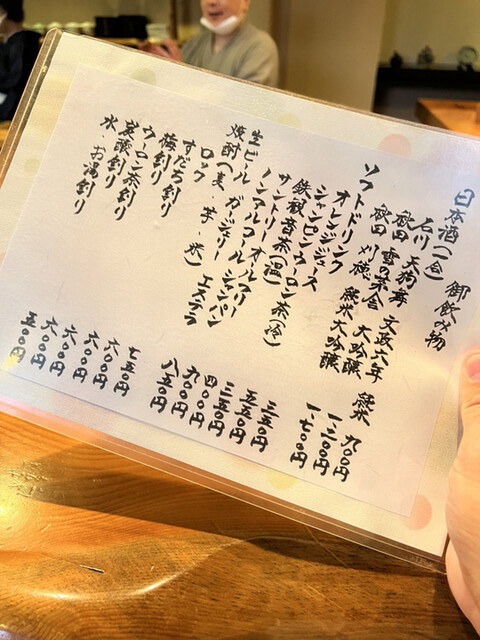 御飲み物
日本酒(一合)
石川 天狗舞 文政六年 純米 九〇〇円
秋田 雪の茅舎 大吟醸 一、三〇〇円
秋田 刈穂 純米大吟醸 一、七〇〇円
ソフトドリンク
オレンジジュース 三五〇円
シャンピンウーロン茶(冷) 五五〇円
鉄観音茶(温) 三五〇円
サントリーオールフリー 四〇〇円
ノンアルコールシャンパン 九〇〇円
生ビール ガージェリー エステラ 八五〇円
焼酎(麦・芋・米)
ロック 七五〇円
すだち割り 六〇〇円
梅割り 六〇〇円
ウーロン茶割り 六〇〇円
炭酸割り 六〇〇円
水 お湯割り 五〇〇円